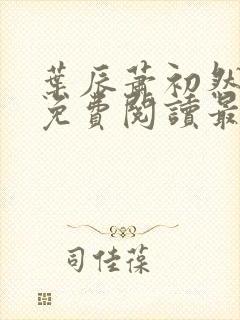 葉辰蕭初然
免費閱讀最
司佳葆